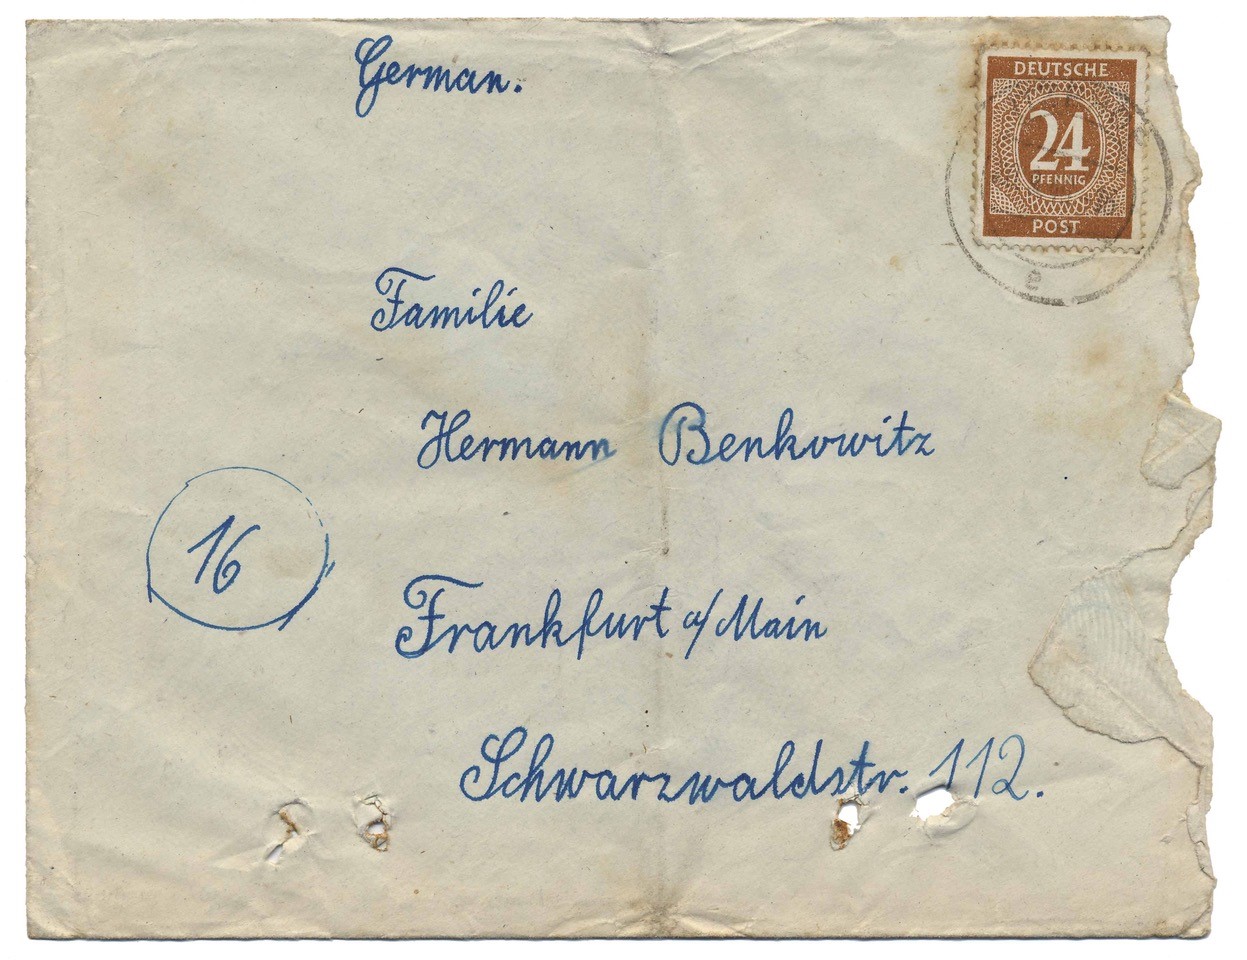 German.
DEUTSCHE
24
PFENNIG
POST
Familie
Hermann Benkowitz
16
Frankfurt a/Main
Schwarzwaldstr. 112.
e